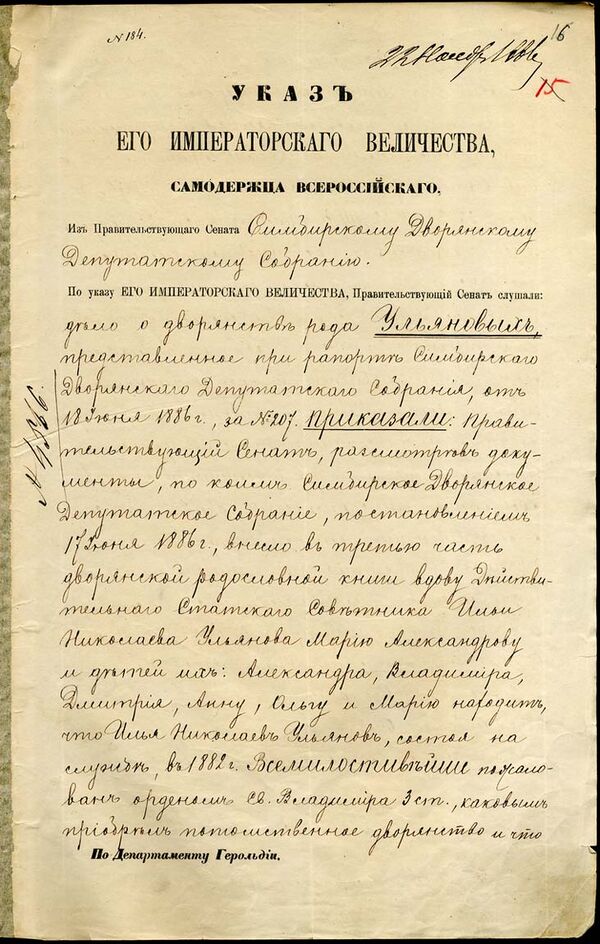 N 184.
16
22 Нояб 1886
15
УКАЗЪ
ЕГО ИМПЕРАТОРСКАГО ВЕЛИЧЕСТВА,
САМОДЕРЖЦА ВСЕРОССІЙСКАГО,
Изъ Правительствующаго Сената Симбирскому Дворянскому
Депутатскому Собранію.
По указу ЕГО ИМПЕРАТОРСКАГО ВЕЛИЧЕСТВА, Правительствующій Сенатъ слушали:
дѣло о дворянствѣ рода Ульяновыхъ,
представленное при рапортѣ Симбирскаго
Дворянскаго Депутатскаго Собранія, отъ
18 Іюня 1886 г., за № 207. Приказали: Прави-
тельствующій Сенатъ, разсмотрѣвъ доку-
менты, по коимъ Симбирское Дворянское
Депутатское Собраніе, постановленіемъ
17 Іюня 1886 г., внесло въ третью часть
дворянской родословной книги вдову Дѣйстви-
тельнаго Статскаго Совѣтника Ильи
Николаева Ульянова Марію Александрову
и дѣтей ихъ: Александра, Владиміра,
Дмитрія, Анну, Ольгу и Марію находитъ,
что Илья Николаевъ Ульяновъ, состоя на
службѣ, въ 1882 г. Всемилостивѣйше пожало-
ванъ орденомъ Св. Владиміра 3 ст., каковымъ
пріобрѣлъ потомственное дворянство и что
По Департаменту Герольдіи.